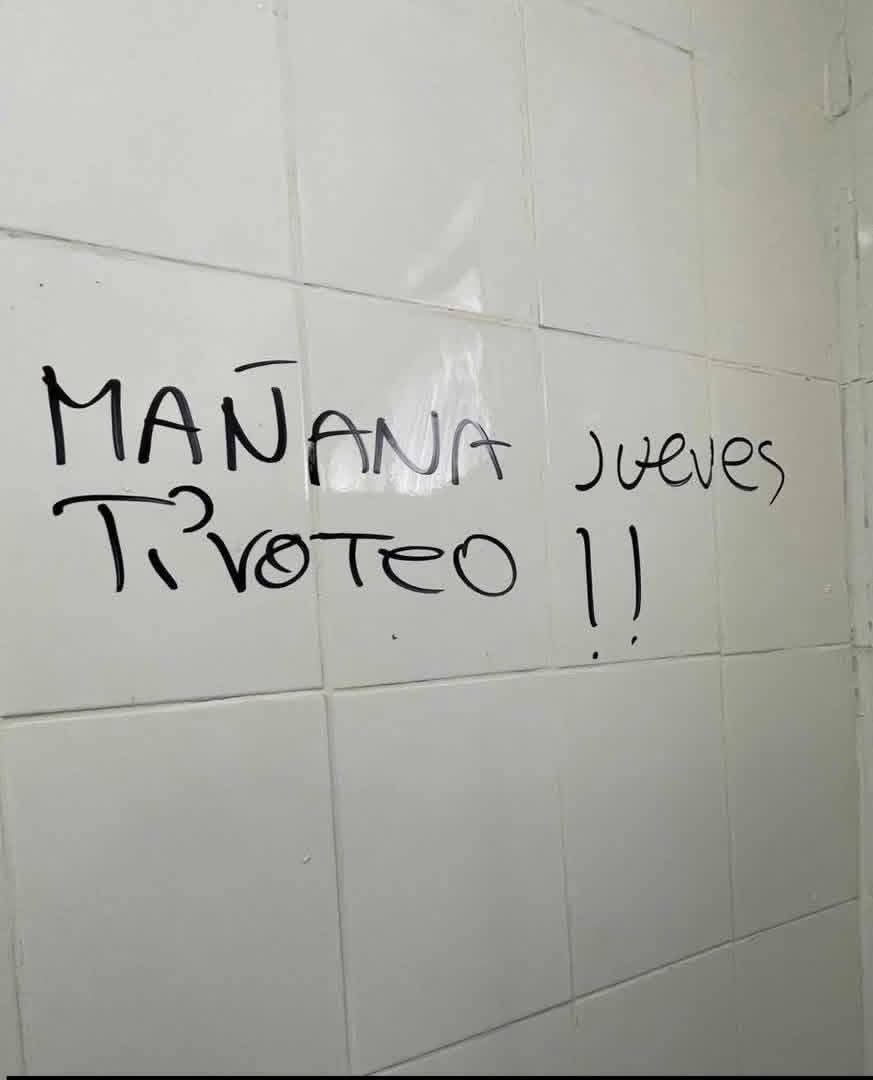 MAÑANA Jueves
Tiroteo !!